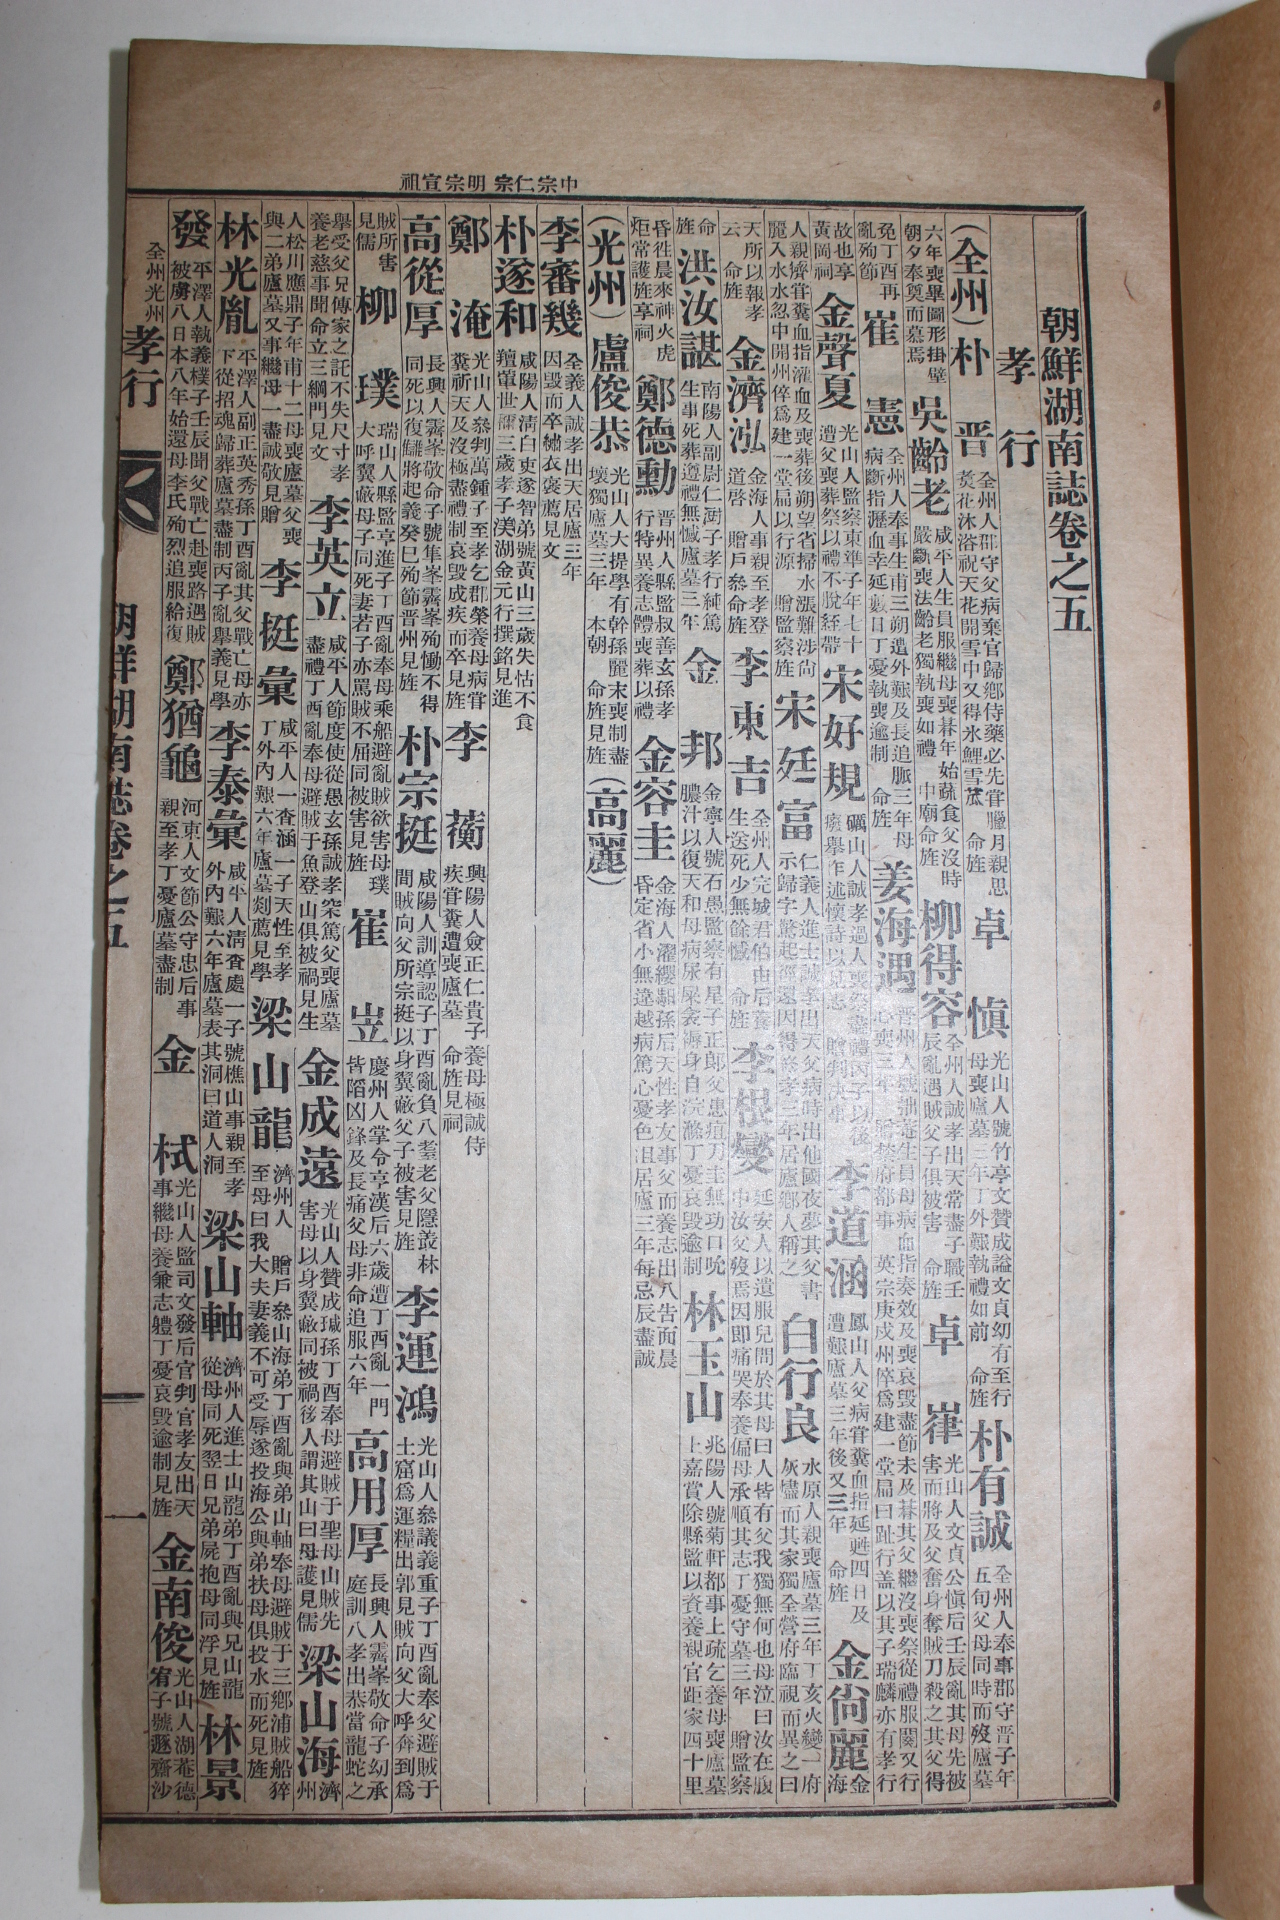 中宗 仁宗 明宗 宣祖
朝鮮湖南誌卷之五
孝行
(全州) 朴晋 全州人郡守父病棄官歸鄕侍藥必先甞臘月親思
蓂花沐浴祝天花開雪中又得氷鯉雪苽 命旌 卓愼 光山人號竹亭文贊成謚文貞幼有至行
母喪廬墓三年丁外艱執禮如前 命旌 朴有誠 全州人奉事郡守晋子年
五旬父母同時而歿廬墓
六年喪畢圖形掛壁
朝夕奉奠而慕焉 吳齡老 咸平人生員服繼母喪朞年始蔬食父沒時
嚴斷喪法齡老獨執喪如禮 中廟命旌 柳得容 全州人誠孝出天常盡子職壬
辰亂遇賊父子俱被害 命旌 卓嵂 光山人文貞公愼后壬辰亂其母先被
害而將及父奮身奪賊刀殺之其父得
免丁酉再
亂殉節 崔憲 全州人奉事生甫三朔遭外艱及長追服三年母
病斷指瀝血幸延數日丁憂執喪逾制 命旌 姜海遇
故也享
黃岡祠 金聲夏 光山人監察東準子年七十
遭父喪葬祭以禮不脫絰帶 宋好規 礪山人誠孝過人喪祭盡禮丙子以後
李道涵 鳳山人父病甞糞血指延甦四日及
遭艱廬墓三年後又三年 命旌 金尙麗 金
海
人親濟甞糞血指灌血及喪葬後朔望省掃水漲難涉尙
麗入水水忽中開州倅爲建一堂扁以行源 贈監察旌 宋廷富 仁義人進士誠孝出天父病時出他國夜夢其父書
白行良 水原人親喪廬墓三年丁亥火變一府
灰燼而其家獨全營府臨視而異之曰
天所以報孝
云 命旌 金濟泓 金海人事親至孝登
道啓 贈戶叅命旌 李東吉 全州人完城君伯由后養
生送死少無餘憾 命旌 李根燮 延安人以遺服兒問於其母曰人皆有父我獨無何也母泣曰汝在腹
中汝父歿焉因卽痛哭奉養偏母承順其志丁憂守墓三年 贈監察
命
旌 洪汝諶 南陽人副尉仁澍子孝行純篤
生事死葬遵禮無憾廬墓三年 金邦 金寧人號石愚監察有星子正郎父患疽刀圭無功口吮
膿汁以復天和母病尿屎衾溽身自浣滌丁憂哀毁逾制 林玉山 兆陽人號菊軒都事上疏乞養母喪廬墓
上嘉賞除縣監以資養親官距家四十里
昏徃晨來神火虎
炬常護旌享祠 鄭德勳 晋州人縣監叔善玄孫孝
行特異養志體喪葬以禮 金容圭 金海人濯纓馹孫后天性孝友事父而養志出入告而晨
昏定省小無違越病篤心憂色沮居廬三年每忌辰盡誠
(光州) 盧俊恭 光山人大提學有幹孫麗末喪制盡
壞獨廬墓三年 本朝 命旌見旌 (高麗)
李審幾 全義人誠孝出天居廬三年
因毁而卒補衣褒薦見文
朴遂和 咸陽人淸白吏遂智弟號黃山三歲失怙不食
羶葷世謂三歲孝子渼湖金元行撰銘見進
鄭淹 光山人叅判萬鍾子至孝乞郡榮養母病甞
糞祈天及沒極盡禮制哀毁成疾而卒見旌 李蘅 興陽人僉正仁貴子 養母極誠侍
疾甞糞遭喪廬墓 命旌見祠
高從厚 長興人霽峯敬命子號隼峯霽峯殉慟不得
同死以復讎將起義癸巳殉節晋州見旌 朴宗挺 咸陽人訓導認子丁酉亂負八耋老父隱叢林
間賊向父所宗挺以身翼蔽父子被害見旌 李運鴻 光山人叅議義重子丁酉亂奉父避賊于
土窟爲運糧出郭見賊向父大呼奔到爲
賊所害
見儒 柳璞 瑞山人縣監亨進子丁酉亂奉母乘船避亂賊欲害母璞
大呼翼蔽母子同死妻若子亦罵賊不屈同被害見旌 崔岦 慶州人掌令亨漢后六歲遭丁酉亂一門
皆陷凶鋒及長痛父母非命追服六年 高用厚 長興人霽峯敬命子幼承
庭訓八孝出恭當龍蛇之
擧受父兄傳家之託不失尺寸孝
養老慈事聞命立三綱門見文 李英立 咸平人節度使從愚玄孫誠孝突篤父喪廬墓
盡禮丁酉亂奉母避賊于魚登山俱被禍見生 金成遠 光山人贊成瑊孫丁酉奉母避賊于聖母山賊先
害母以身翼蔽同被禍後人謂其山曰母護見儒 梁山海 濟
州
人松川應鼎子年甫十二母喪廬墓父喪
與二弟廬墓又事繼母一盡誠敬見贈 李挺彙 咸平人一査涵一子天性至孝
丁外內艱六年廬墓剡薦見學 梁山龍 濟州人 贈戶叅山海弟丁酉亂與弟山軸奉母避賊于三鄕浦賊船猝
至母曰我大夫妻義不可受辱遂投海公與弟扶母俱投水而死見旌
林光胤 平澤人副正英秀孫丁酉亂其父戰亡母亦
下從招魂歸葬廬墓盡制丙子亂擧義見學 李泰彙 咸平人淸査處一子號樵山事親至孝
外內艱六年廬墓表其洞曰道人洞 梁山軸 濟州人進士山龍弟丁酉亂與兄山龍
從母同死翌日兄弟屍抱母同浮見旌 林景
發 平澤人執義樸子壬辰聞父戰亡赴喪路遇賊
被虜八日本八年始還母李氏殉烈追服給復 鄭猶龜 河東人文節公守忠后事
親至孝丁憂廬墓盡制 金栻 光山人監司文發后官判官孝友出天
事繼母養兼志軆丁憂哀毁逾制見旌 金南俊 光山人湖菴德
宥子號遯齋沙
全州光州 孝行
朝鮮湖南誌卷之五
一